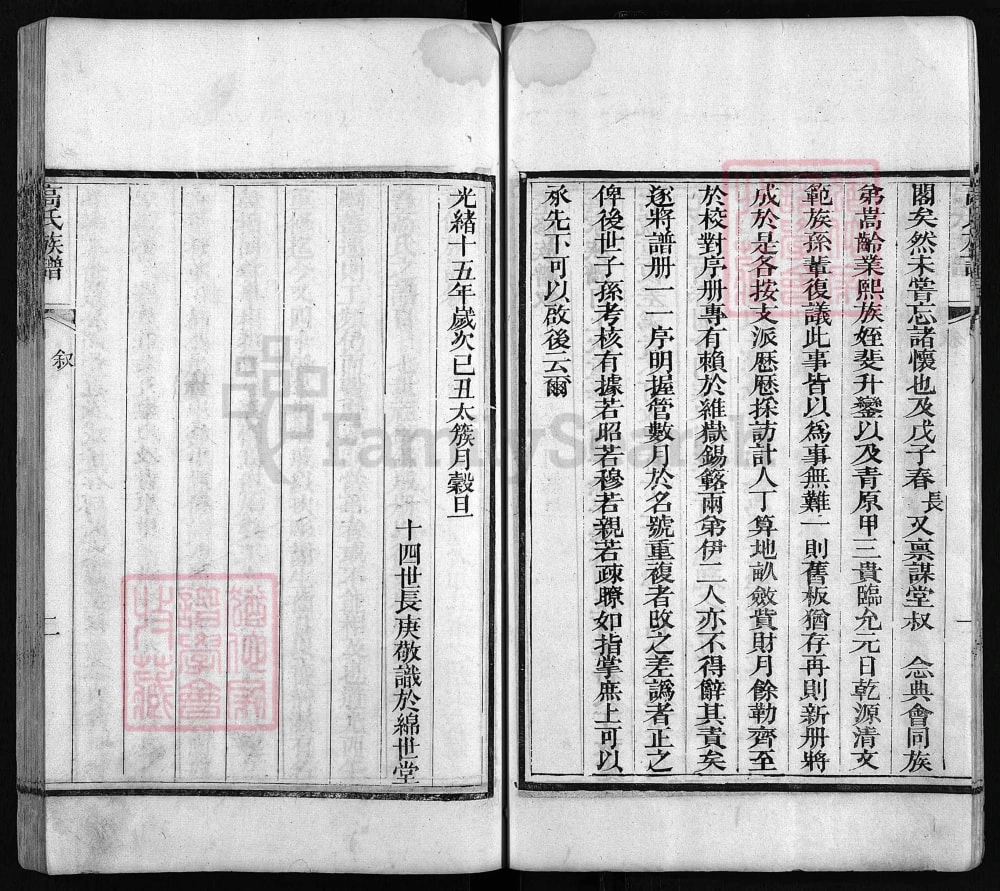 閣矣然未嘗忘諸懷也及戊子春長又禀謀堂叔　念典會同族
弟嵩齡業熙族姪斐升鑾以及青原甲三貴臨允元日乾源清文
範族孫輩復議此事皆以爲事無難一則舊板猶存再則新册將
成於是各按支派歷歷採訪計人丁算地畝斂貲財月餘勒齊至
於校對序册專有賴於維嶽錫簵兩弟伊二人亦不得辭其責矣
遂將譜册一一序明握管數月於名號重複者改之差譌者正之
俾後世子孫考核有據若昭若穆若親若疎瞭如指掌庶上可以
承先下可以啟後云爾
一
光緒十五年歲次己丑太簇月穀旦
十四世長庚敬識於綿世堂
高氏族譜
敘
二
FamilySearch